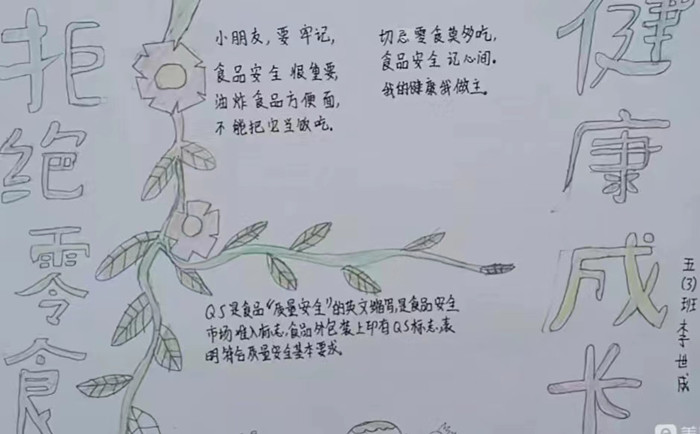 拒绝零食
小朋友，要牢记，
食品安全很重要，
油炸食品方便面，
不能把它当饭吃。
切忌零食莫多吃，
食品安全记心间。
我的健康我做主。
QS是食品“质量安全”的英文缩写，是食品安全
市场准入标志，食品外包装上印有QS标志，表
明符合质量安全基本要求。
健康成长
五(3)班李世成